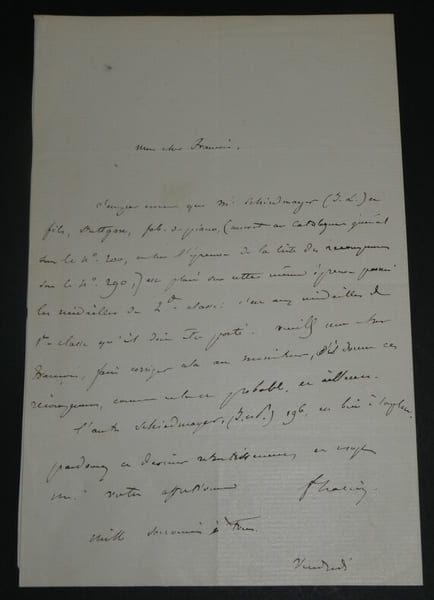 mon cher François,
J'ai que Mr Schiedmayer (J. L.) et
fils, Stuttgart, fab. de pianos, (inscrit au Catalogue général
sous le No. 200, l'épreuve de la liste des récompenses
sous le No. 290,) est placé sur cette même épreuve parmi
les médailles de 2de classe: c'est aux médailles de
1re classe qu'il doit être porté. mon cher
François, faire corriger cela au moniteur, s'il donne ces
récompenses, comme cela est probable, et ailleurs.
L'autre Schiedmayer, (J. et P.) 196, est bien à sa place.
pardonnez ce dernier et
votre affectionné
mille souvenirs à tous.
Vendredi